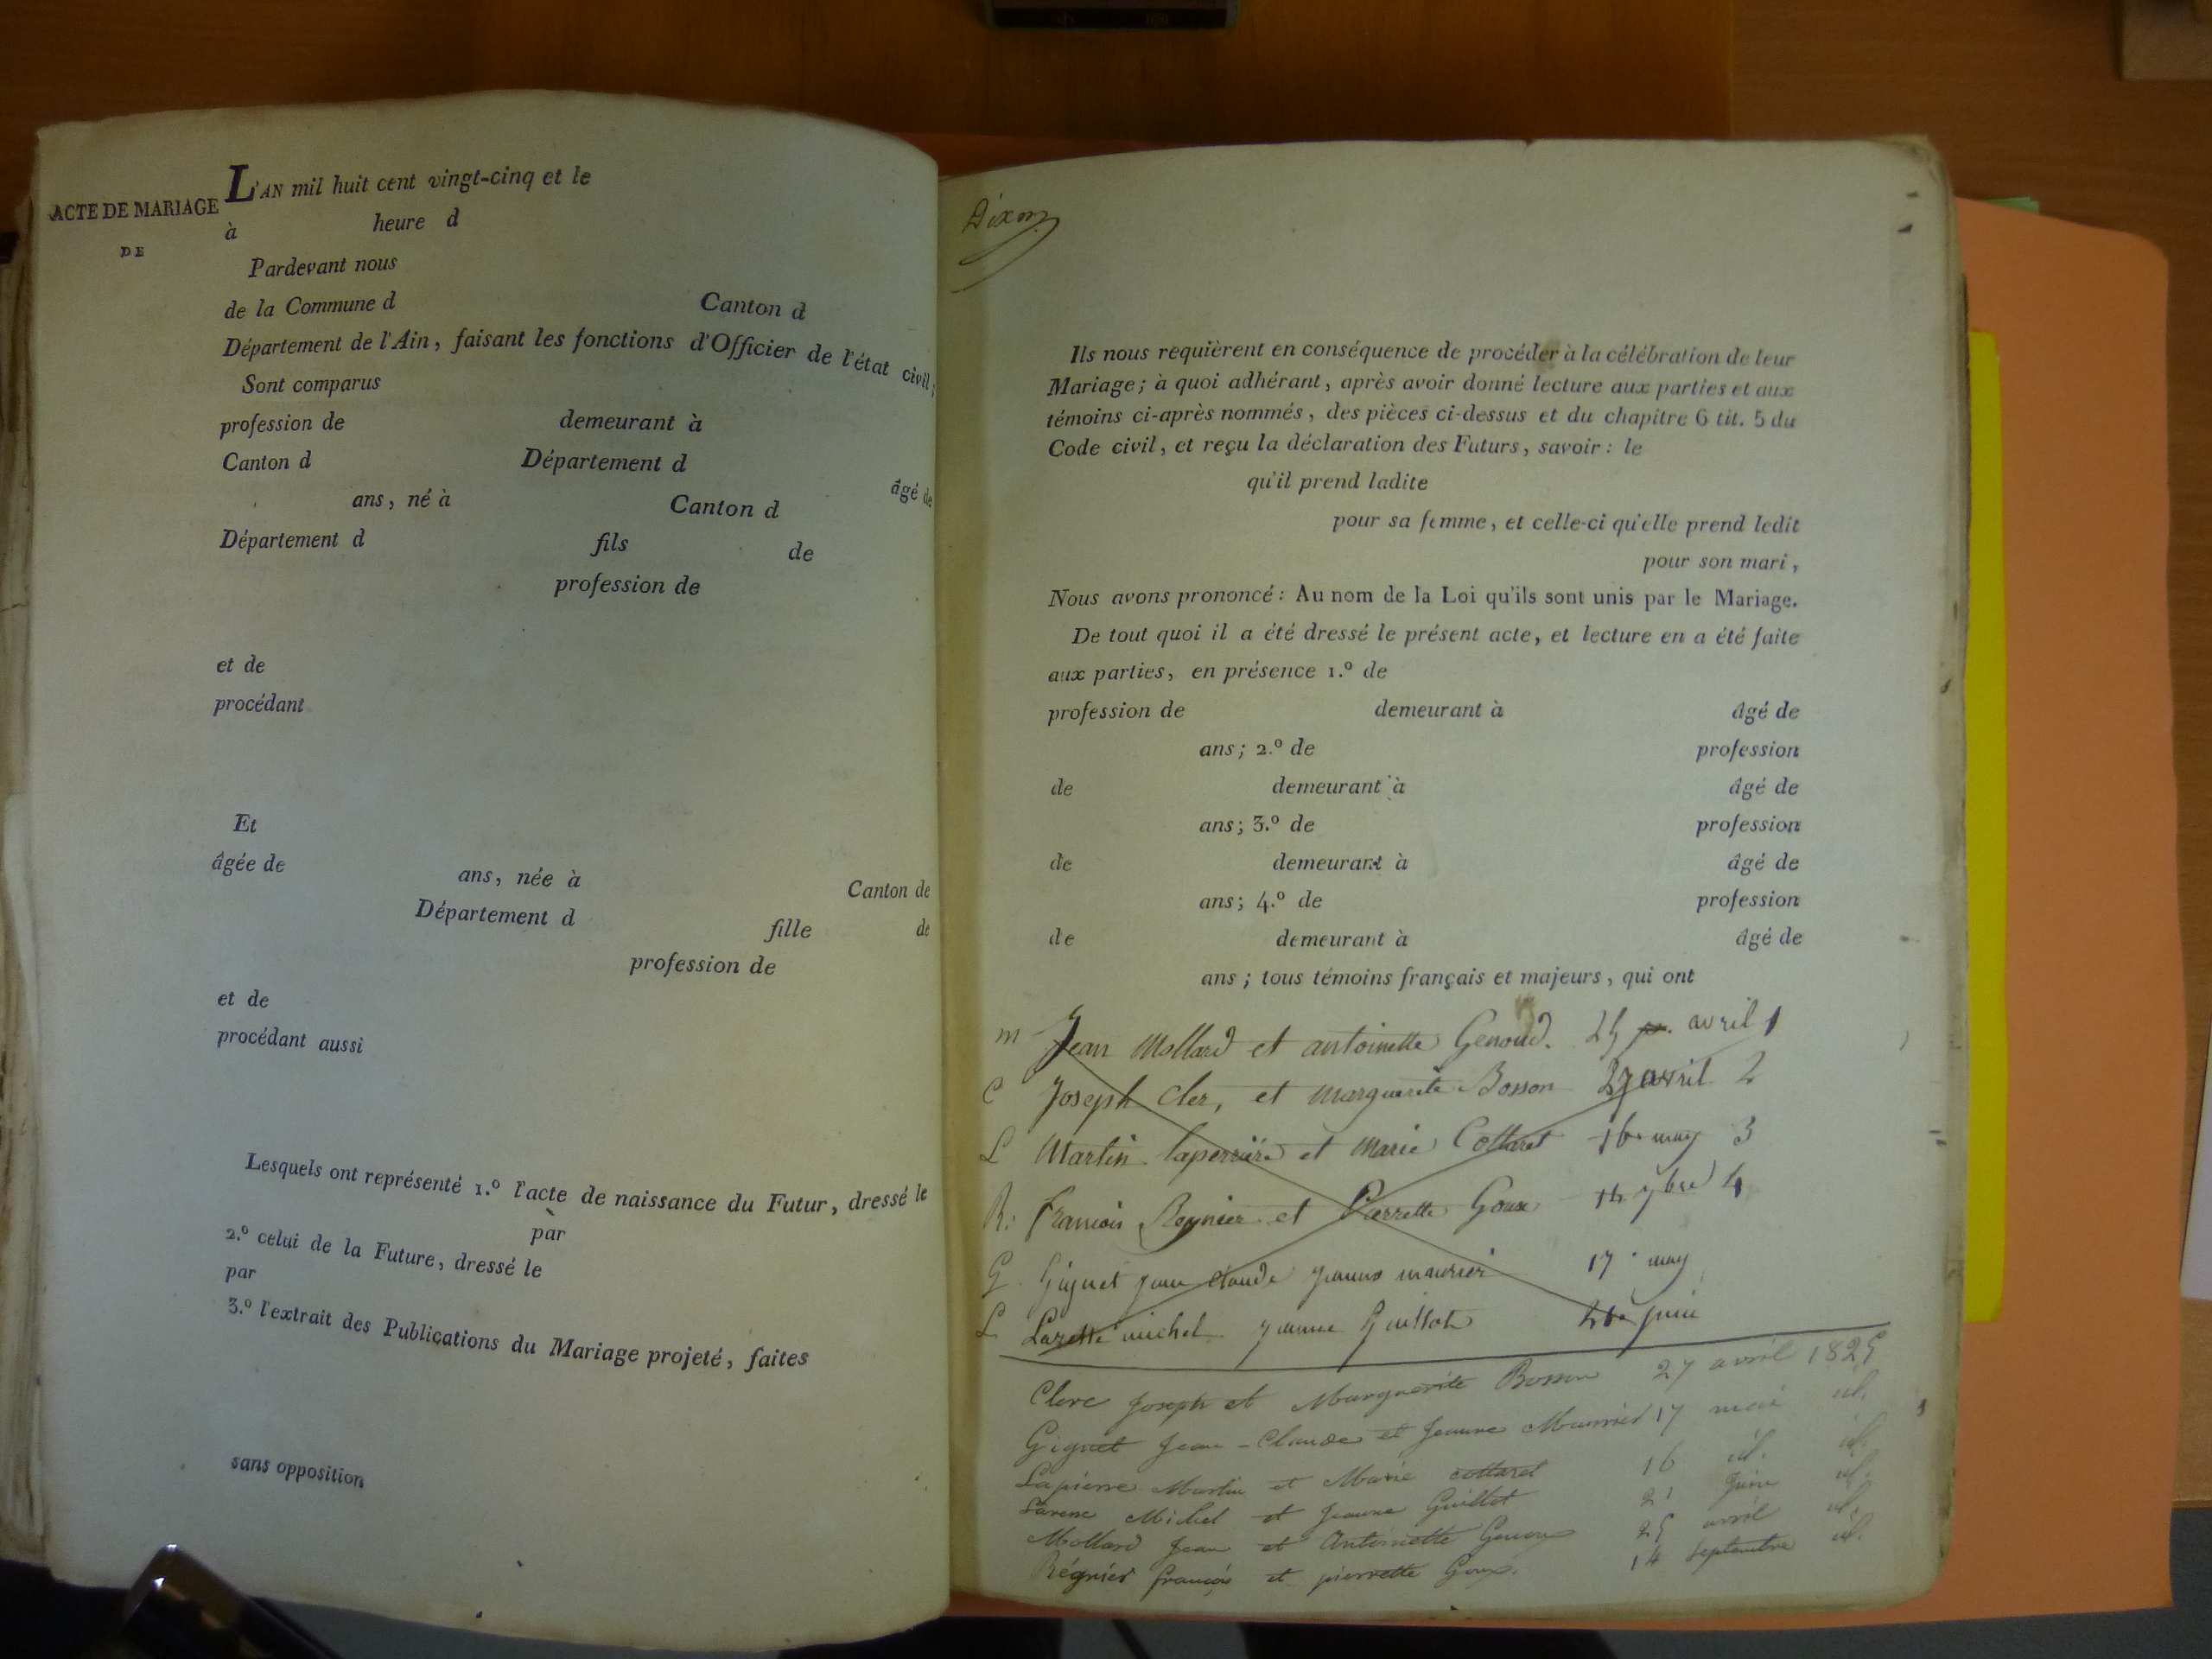 ACTE DE MARIAGE
DE
L'AN mil huit cent vingt-cinq et le
à heure d
Pardevant nous
de la Commune d Canton d
Département de l'Ain, faisant les fonctions d'Officier de l'état civil;
Sont comparus
profession de demeurant à
Canton d Département d
âgé de
ans, né à Canton d
Département d fils de
profession de
et de
procédant
Et
âgée de ans, née à Canton de
Département d fille de
profession de
et de
procédant aussi
Lesquels ont représenté 1.º l'acte de naissance du Futur, dressé le
par
2.º celui de la Future, dressé le
par
3.º l'extrait des Publications du Mariage projeté, faites
sans opposition
Dixon
Ils nous requièrent en conséquence de procéder à la célébration de leur
Mariage; à quoi adhérant, après avoir donné lecture aux parties et aux
témoins ci-après nommés, des pièces ci-dessus et du chapitre 6 tit. 5 du
Code civil, et reçu la déclaration des Futurs, savoir: le
qu'il prend ladite
pour sa femme, et celle-ci qu'elle prend ledit
pour son mari,
Nous avons prononcé: Au nom de la Loi qu'ils sont unis par le Mariage.
De tout quoi il a été dressé le présent acte, et lecture en a été faite
aux parties, en présence 1.º de
profession de demeurant à âgé de
ans; 2.º de profession
de demeurant à âgé de
ans; 3.º de profession
de demeurant à âgé de
ans; 4.º de profession
de demeurant à âgé de
ans; tous témoins français et majeurs, qui ont
m Jean Mollard et antoinette Genoud. 25 avril 1
C Joseph Cler, et marguerite Bosson 27 avril 2
L Martin laperrière et Marie Cottaret 16 may 3
R: francois Regnier et Pierrette Goux 14 7bre 4
G Giguet jean claude jeanne maurier 17 may
L Larette michel jeanne Guillot juin
Clerc Joseph et Marguerite Bosson 27 avril 1825
Giguet Jean-Claude et Jeanne Maurier 17 mai id.
Lapierre Martin et Marie cottaret 16 id. id.
Michel et Jeanne Guillot 21 Juin id.
Mollard Jean et Antoinette Genoux 25 avril id.
Régnier françois et pierrette Goux. 14 Septembre id.